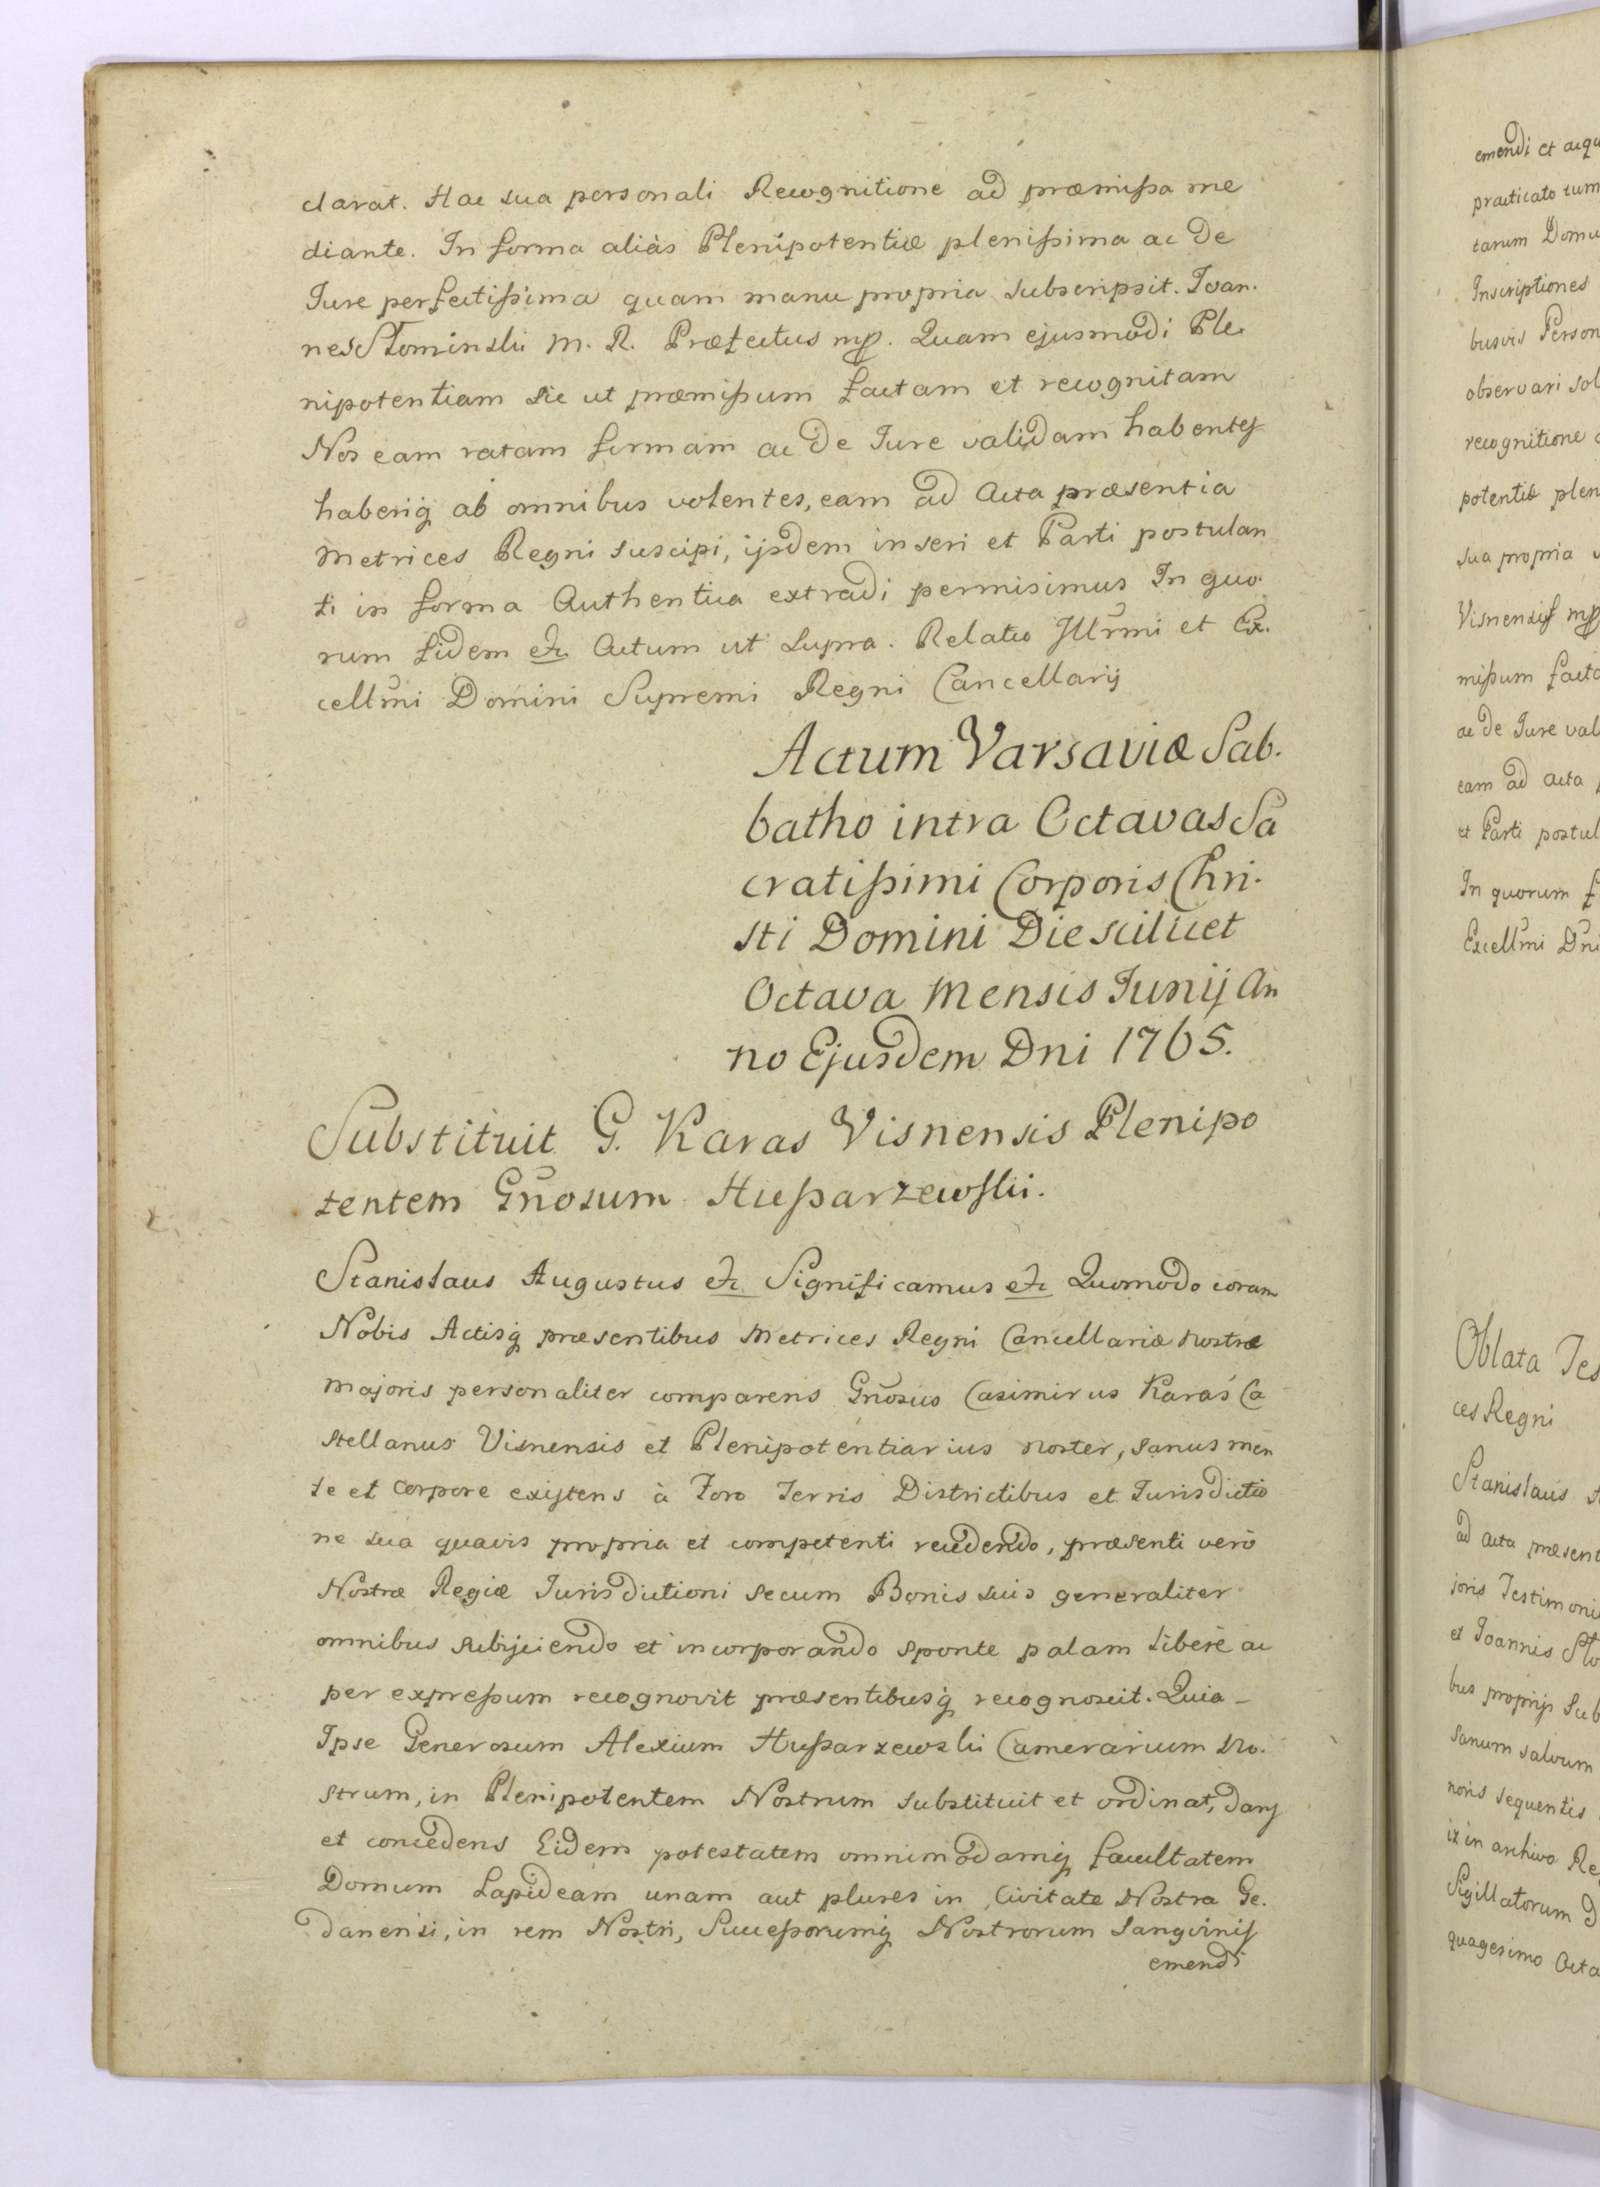 clarat. Hac sua personali Recognitione ad præmissa me
diante. In forma aliàs Plenipotentiæ plenissima ac de
Jure perfectissima quam manu propria subscripsit. Ioan.
nes Słominski M. R. Præfectus mp. Quam ejusmodi Ple
nipotentiam sic ut præmissum factam et recognitam
Nos eam ratam firmam ac de Jure validam habentes
haberiq ab omnibus volentes, eam ad Acta præsentia
Metrices Regni suscipi, ijsdem inseri et Parti postulan
ti in forma Authentica extradi permisimus In quo
rum fidem etc. Actum ut supra. Relatio Illrmi et Ex.
cellmi Domini Supremi Regni Cancellarij
Actum Varsaviæ Sab.
batho intra Octavas Sa
cratissimi Corporis Chri.
sti Domini Die scilicet
Octava Mensis Junij An
no Ejusdem Dni 1765.
Substituit G. Karas Visnensis Plenipo
tentem Gnosum Hussarzewski.
Stanislaus Augustus etc Significamus etc Quomodo coram
Nobis Actisq præsentibus Metrices Regni Cancellariæ Nostræ
Majoris personaliter comparens Gnosus Casimirus Karaś Ca
stellanus Visnensis et Plenipotentiarius Noster, sanus men
te et corpore existens à Foro Terris Districtibus et Jurisdictio
ne sua quavis propria et competenti recedendo, præsenti verò
Nostræ Regiæ Jurisdictioni secum Bonis suis generaliter
omnibus subijciendo et incorporando sponte palam libere ac
per expressum recognovit præsentibusq recognoscit. Quia _
Ipse Generosum Alexium Hussarzewski Camerarium No.
strum, in Plenipotentem Nostrum substituit et ordinat, dans
et concedens Eidem potestatem omnimodamq facultatem
Domum Lapideam unam aut plures in Civitate Nostra Ge.
danensi, in rem Nostri, Successorumq Nostrorum Sangvinis
emendi
emendi et acqu
practicato tum
tarum Domu
Inscriptiones
busvis Person
observari sol
recognitione
potentiæ plen
sua propria
Visnensis mp
missum facta
ac de Jure val
eam ad acta
et Parti postul
In quorum f
Excellmi Dni
Oblata Tes
ces Regni
Stanislaus
ad acta præsent
joris Testimoni
et Joannis Sło
bus proprijs sub
sanum salvum
noris sequentis
ix in archivo Re
Sigillatorum D
quagesimo Octa